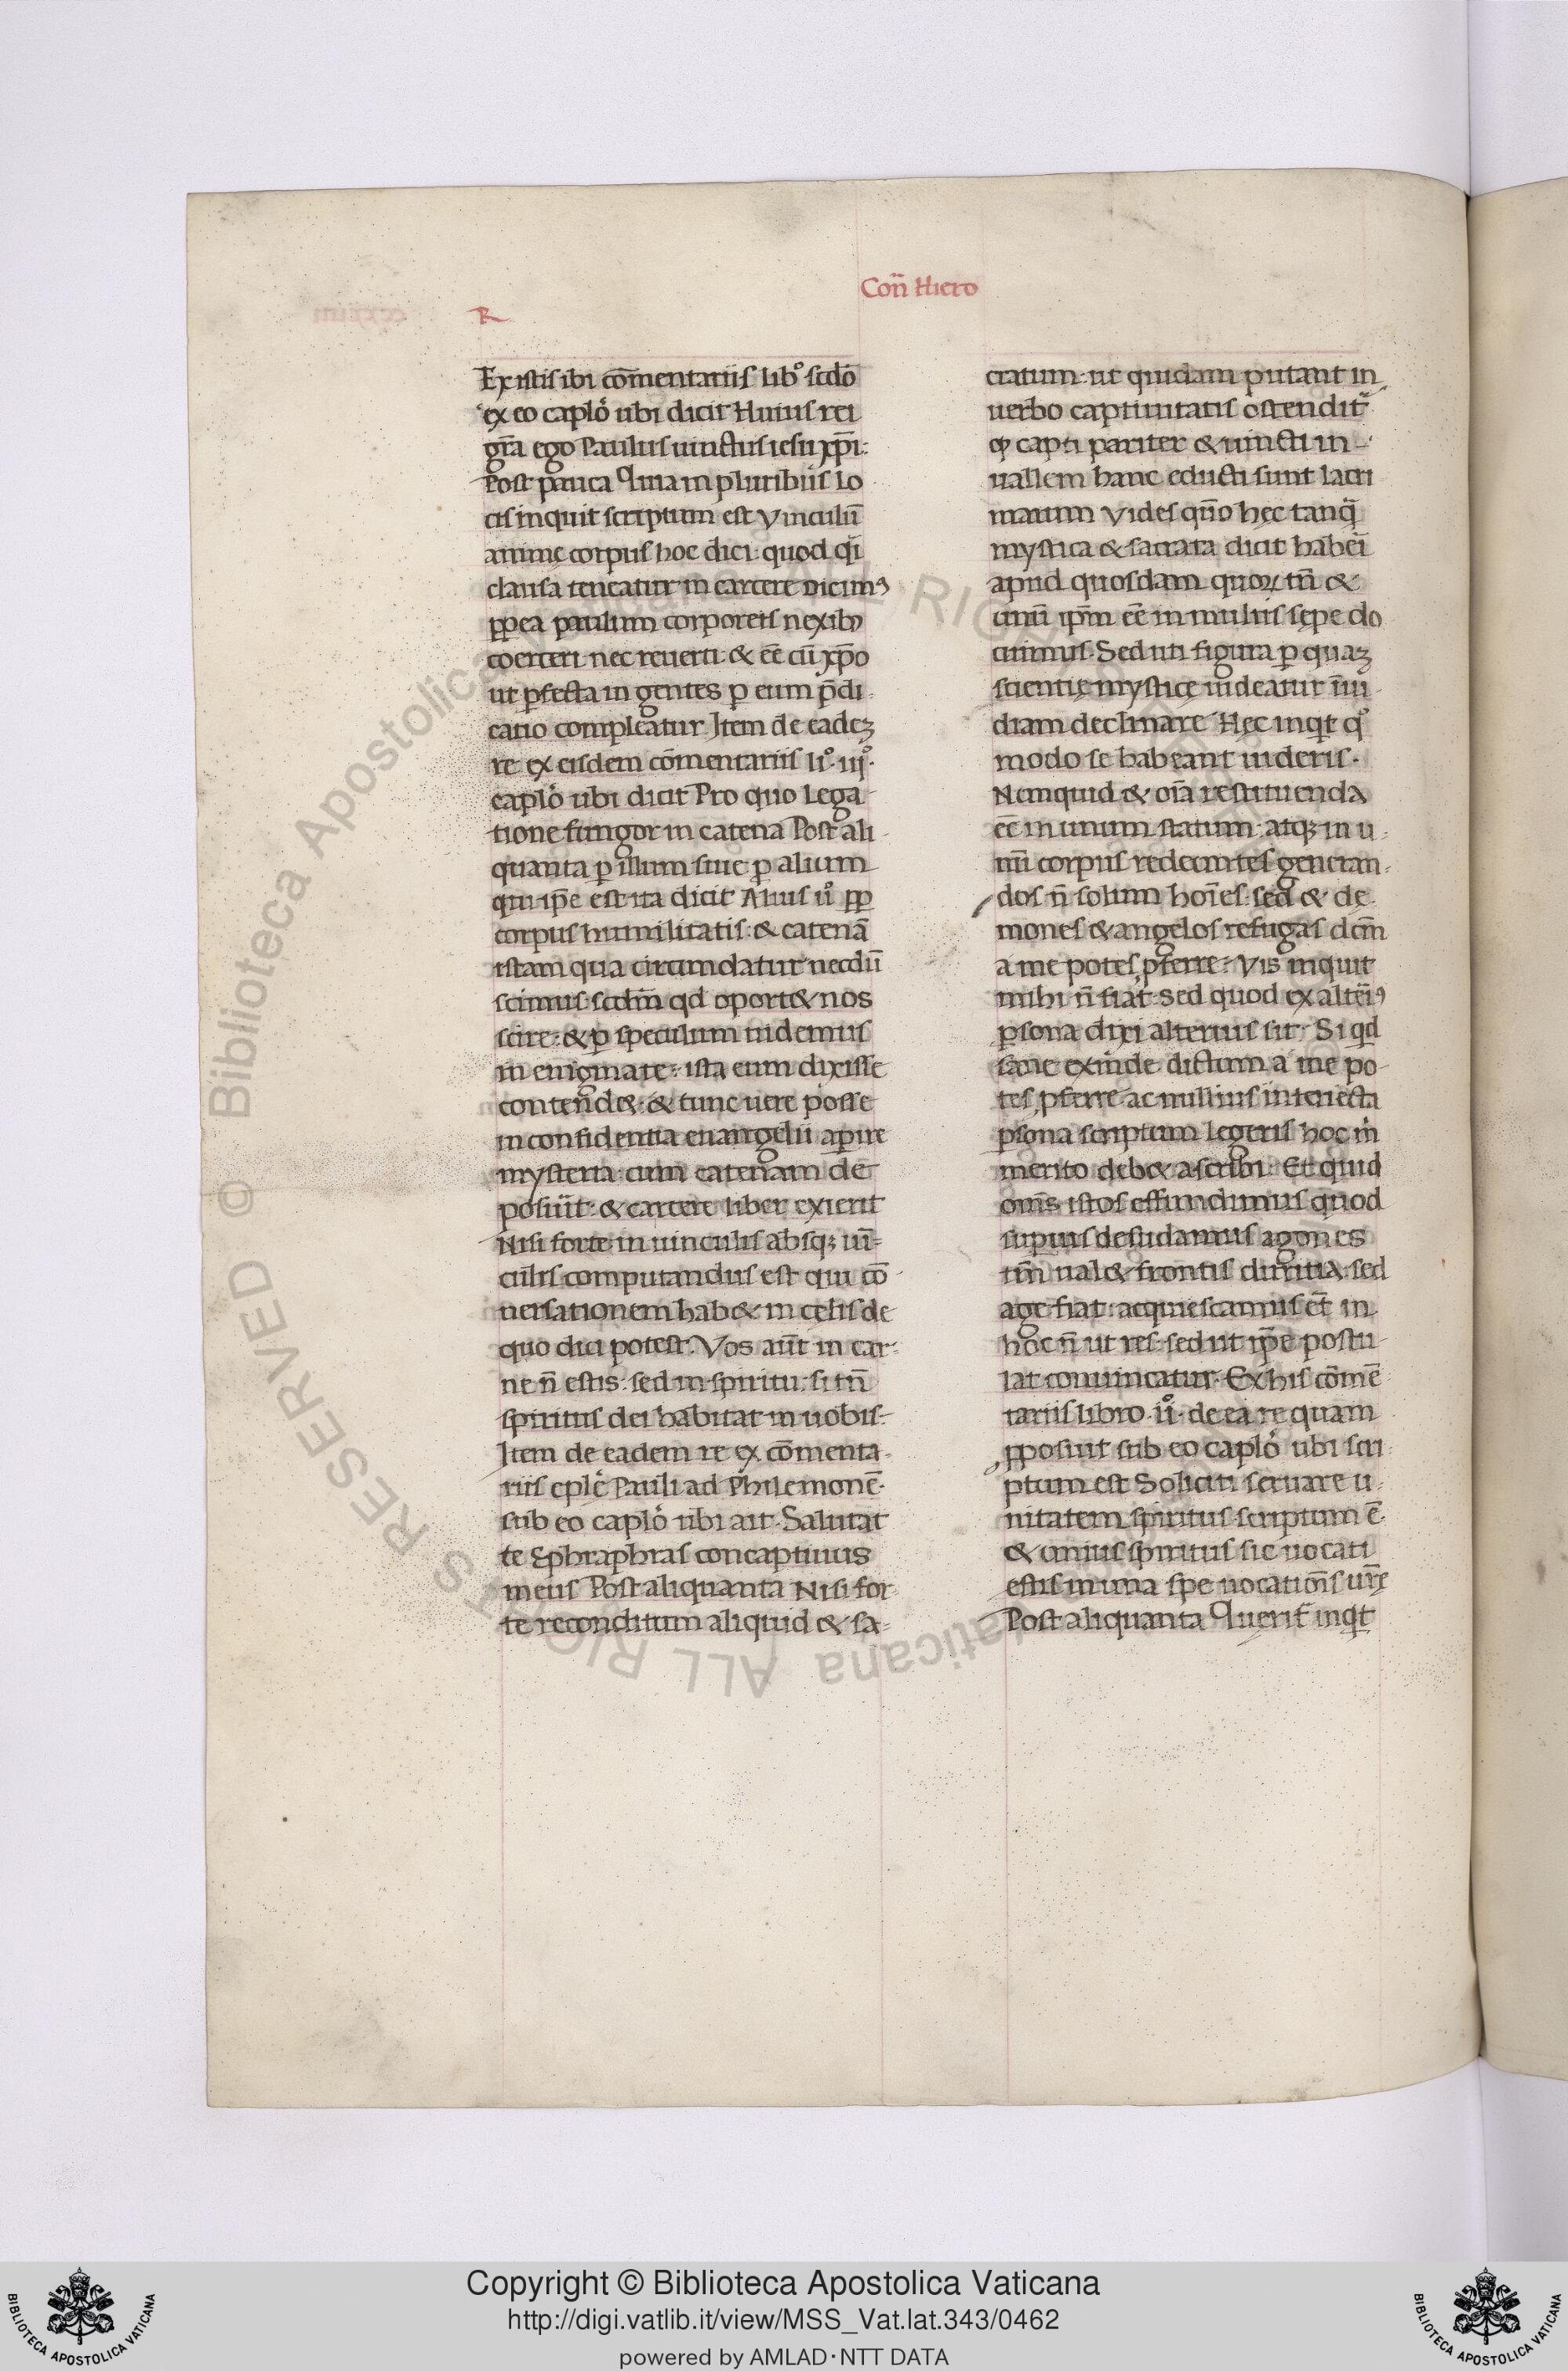 Con̄ Hiero
R
Ex istis ibi cōmentariis lib° scdō
ex eo caplo ubi dicit Huius rei
gr̄a ego Paulus uinctus iesu xp̄i:
Post pauca Qm̄a in pluribus lo
cis inquit scriptum est Vinculū
anime corpus hoc dici: quod q̄i
clausa teneatur in carcere Dicimꝰ
ꝓpea paulum corporeis nexibꝫ
coerceri nec reuerti & eē cū xp̄o
ut ꝑfecta in gentes ꝑ eum p̄di
catio compleatur Item de eadeꝫ
re ex eisdem cōmentariis li° iij°
caplo ubi dicit Pro quo Lega
tione fungor in catena Post ali
quanta ꝑ illum siue ꝑ alium
qui ip̄e est ita dicit Alius u° ꝓꝑ
corpus humilitatis & catenā
istam qua circundatur necdū
scimus scdm̄ qd oport& nos
scire: & ꝑ speculum uidemus
in enigmate: ista eum dixisse
contend&: & tunc uere posse
in confidentia euangelii aꝑire
mysteria: cum catenam de
posuit: & carcere liber exierit
Nisi forte in uinculis absqꝫ uī
culis computandus est qui cō
uersationem hab& in celis de
quo dici potest. Vos aūt in car
ne n̄ estis: sed in spiritu: si tn̄
spiritus dei habitat in uobis.
Item de eadem re ex cōmenta
riis eple Pauli ad Philemonē
sub eo caplo ubi ait Salutat
te Ephraphras concaptiuus
meus Post aliquanta Nisi for
te reconditum aliquid & sa
cratum: ut quidam putant in
uerbo captiuitatis ostendit
ꝙ capti pariter & uincti in
uallem hanc educti sunt lacri
marum Vides quō hec tanq̄
mystica & sacrata dicit haberi
apud quosdam quoꝝ tn̄ &
unū ip̄m eē in multis sepe do
cuimus. Sed uti figura ꝑ quaꝫ
scientię mysticę uideatur
declinare Hęc inqt q°
modo se habeant uideris.
Nunquid & oīa restituenda
eē in unum statum: atqꝫ in u
nū corpus redeuntes generan
dos n̄ solum hoīes: sed & dę
mones & angelos refugas dcm̄
a me potes ꝓferre: Vis inquit
mihi n̄ fiat: sed quod ex alteriꝰ
ꝑsona dixi alterius sit. Si qd
sane exinde dictum a me po
tes ꝓferre ac nullius interiecta
ꝑsona scriptum Legeris hoc m̄
merito deb& ascribi. Et quid
om̄s istos effundimus quod
suꝑius desudamus agones
tm̄ ual& frontis duritia: sed
age fiat: acquiescamus et̄ in
hoc n̄ ut res: sed ut ip̄e postu
lat conuincatur. Ex his cōmē
tariis libro u° de ea re quam
ꝓposuit sub eo caplo ubi scri
ptum est Soliciti seruare u
nitatem spiritus scriptum ē
& unius spiritus sic uocati
estis in una spe uocationīs ur̄ę
Post aliquanta Querit inqt
Copyright © Biblioteca Apostolica Vaticana
http://digi.vatlib.it/view/MSS_Vat.lat.343/0462
powered by AMLAD·NTT DATA
BIBLIOTECA APOSTOLICA VATICANA
BIBLIOTECA APOSTOLICA VATICANA
© Biblioteca Apostolica Vaticana ALL RIGHTS RESERVED